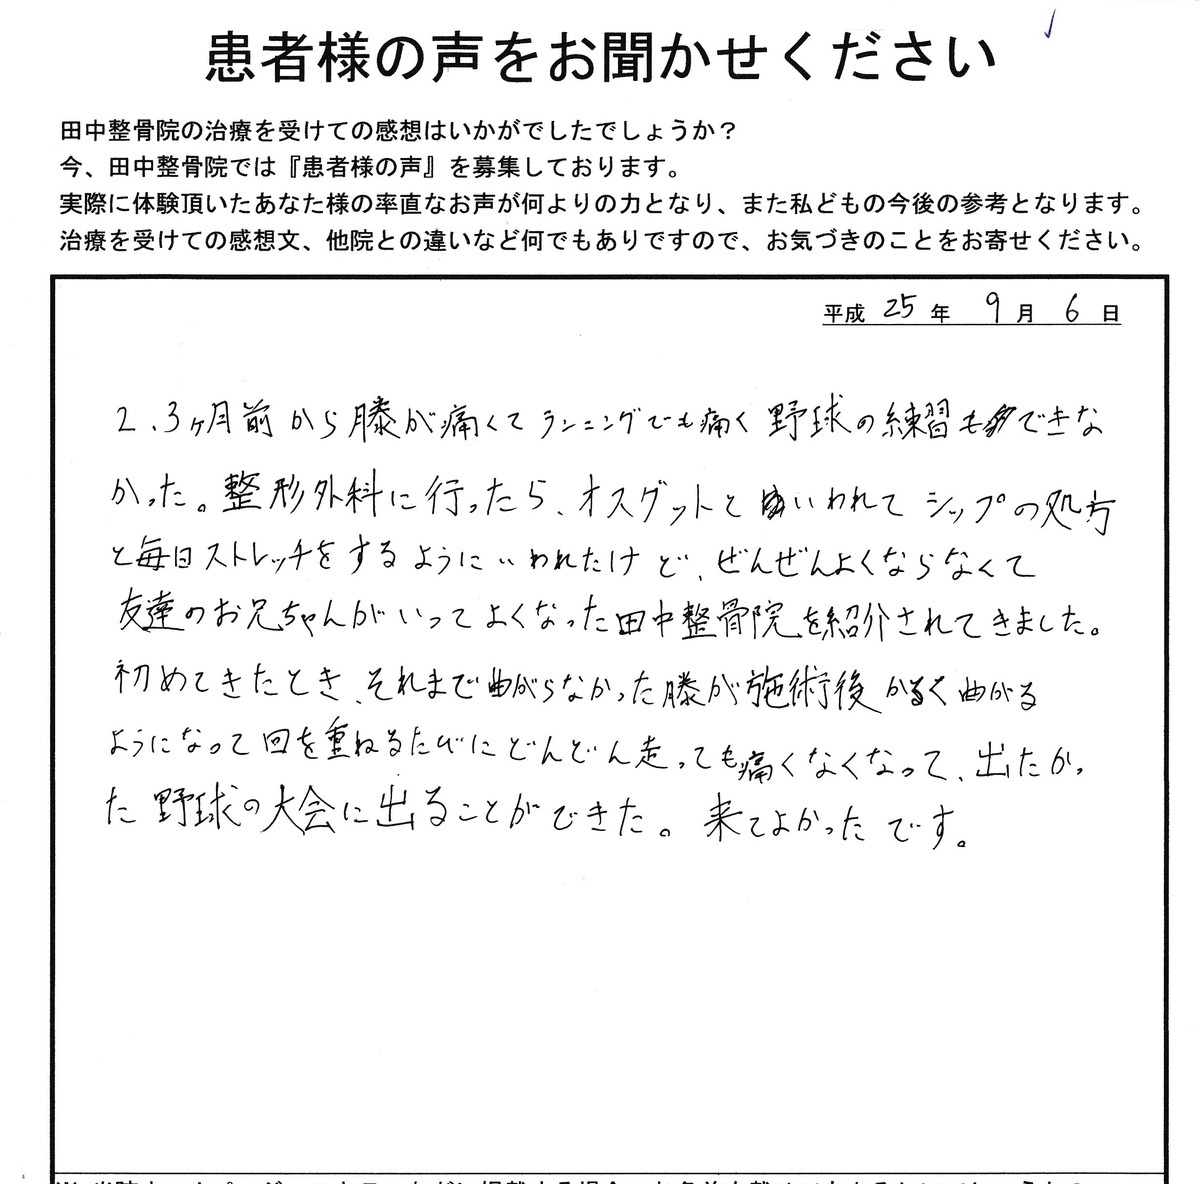 患者様の声をお聞かせください
田中整骨院の治療を受けての感想はいかがでしたでしょうか？
今、田中整骨院では『患者様の声』を募集しております。
実際に体験頂いたあなた様の率直なお声が何よりの力となり、また私どもの今後の参考となります。
治療を受けての感想文、他院との違いなど何でもありですので、お気づきのことをお寄せください。
平成 25 年 9 月 6 日
2、3ヶ月前から膝が痛くてランニングでも痛く野球の練習もできな
かった。整形外科に行ったら、オスグットといわれてシップの処方
と毎日ストレッチをするようにいわれたけど、ぜんぜんよくならなくて
友達のお兄ちゃんがいってよくなった田中整骨院を紹介されてきました。
初めてきたとき、それまで曲がらなかった膝が施術後かるく曲がる
ようになって回を重ねるたびにどんどん走っても痛くなくなって、出たかっ
た野球の大会に出ることができた。来てよかったです。